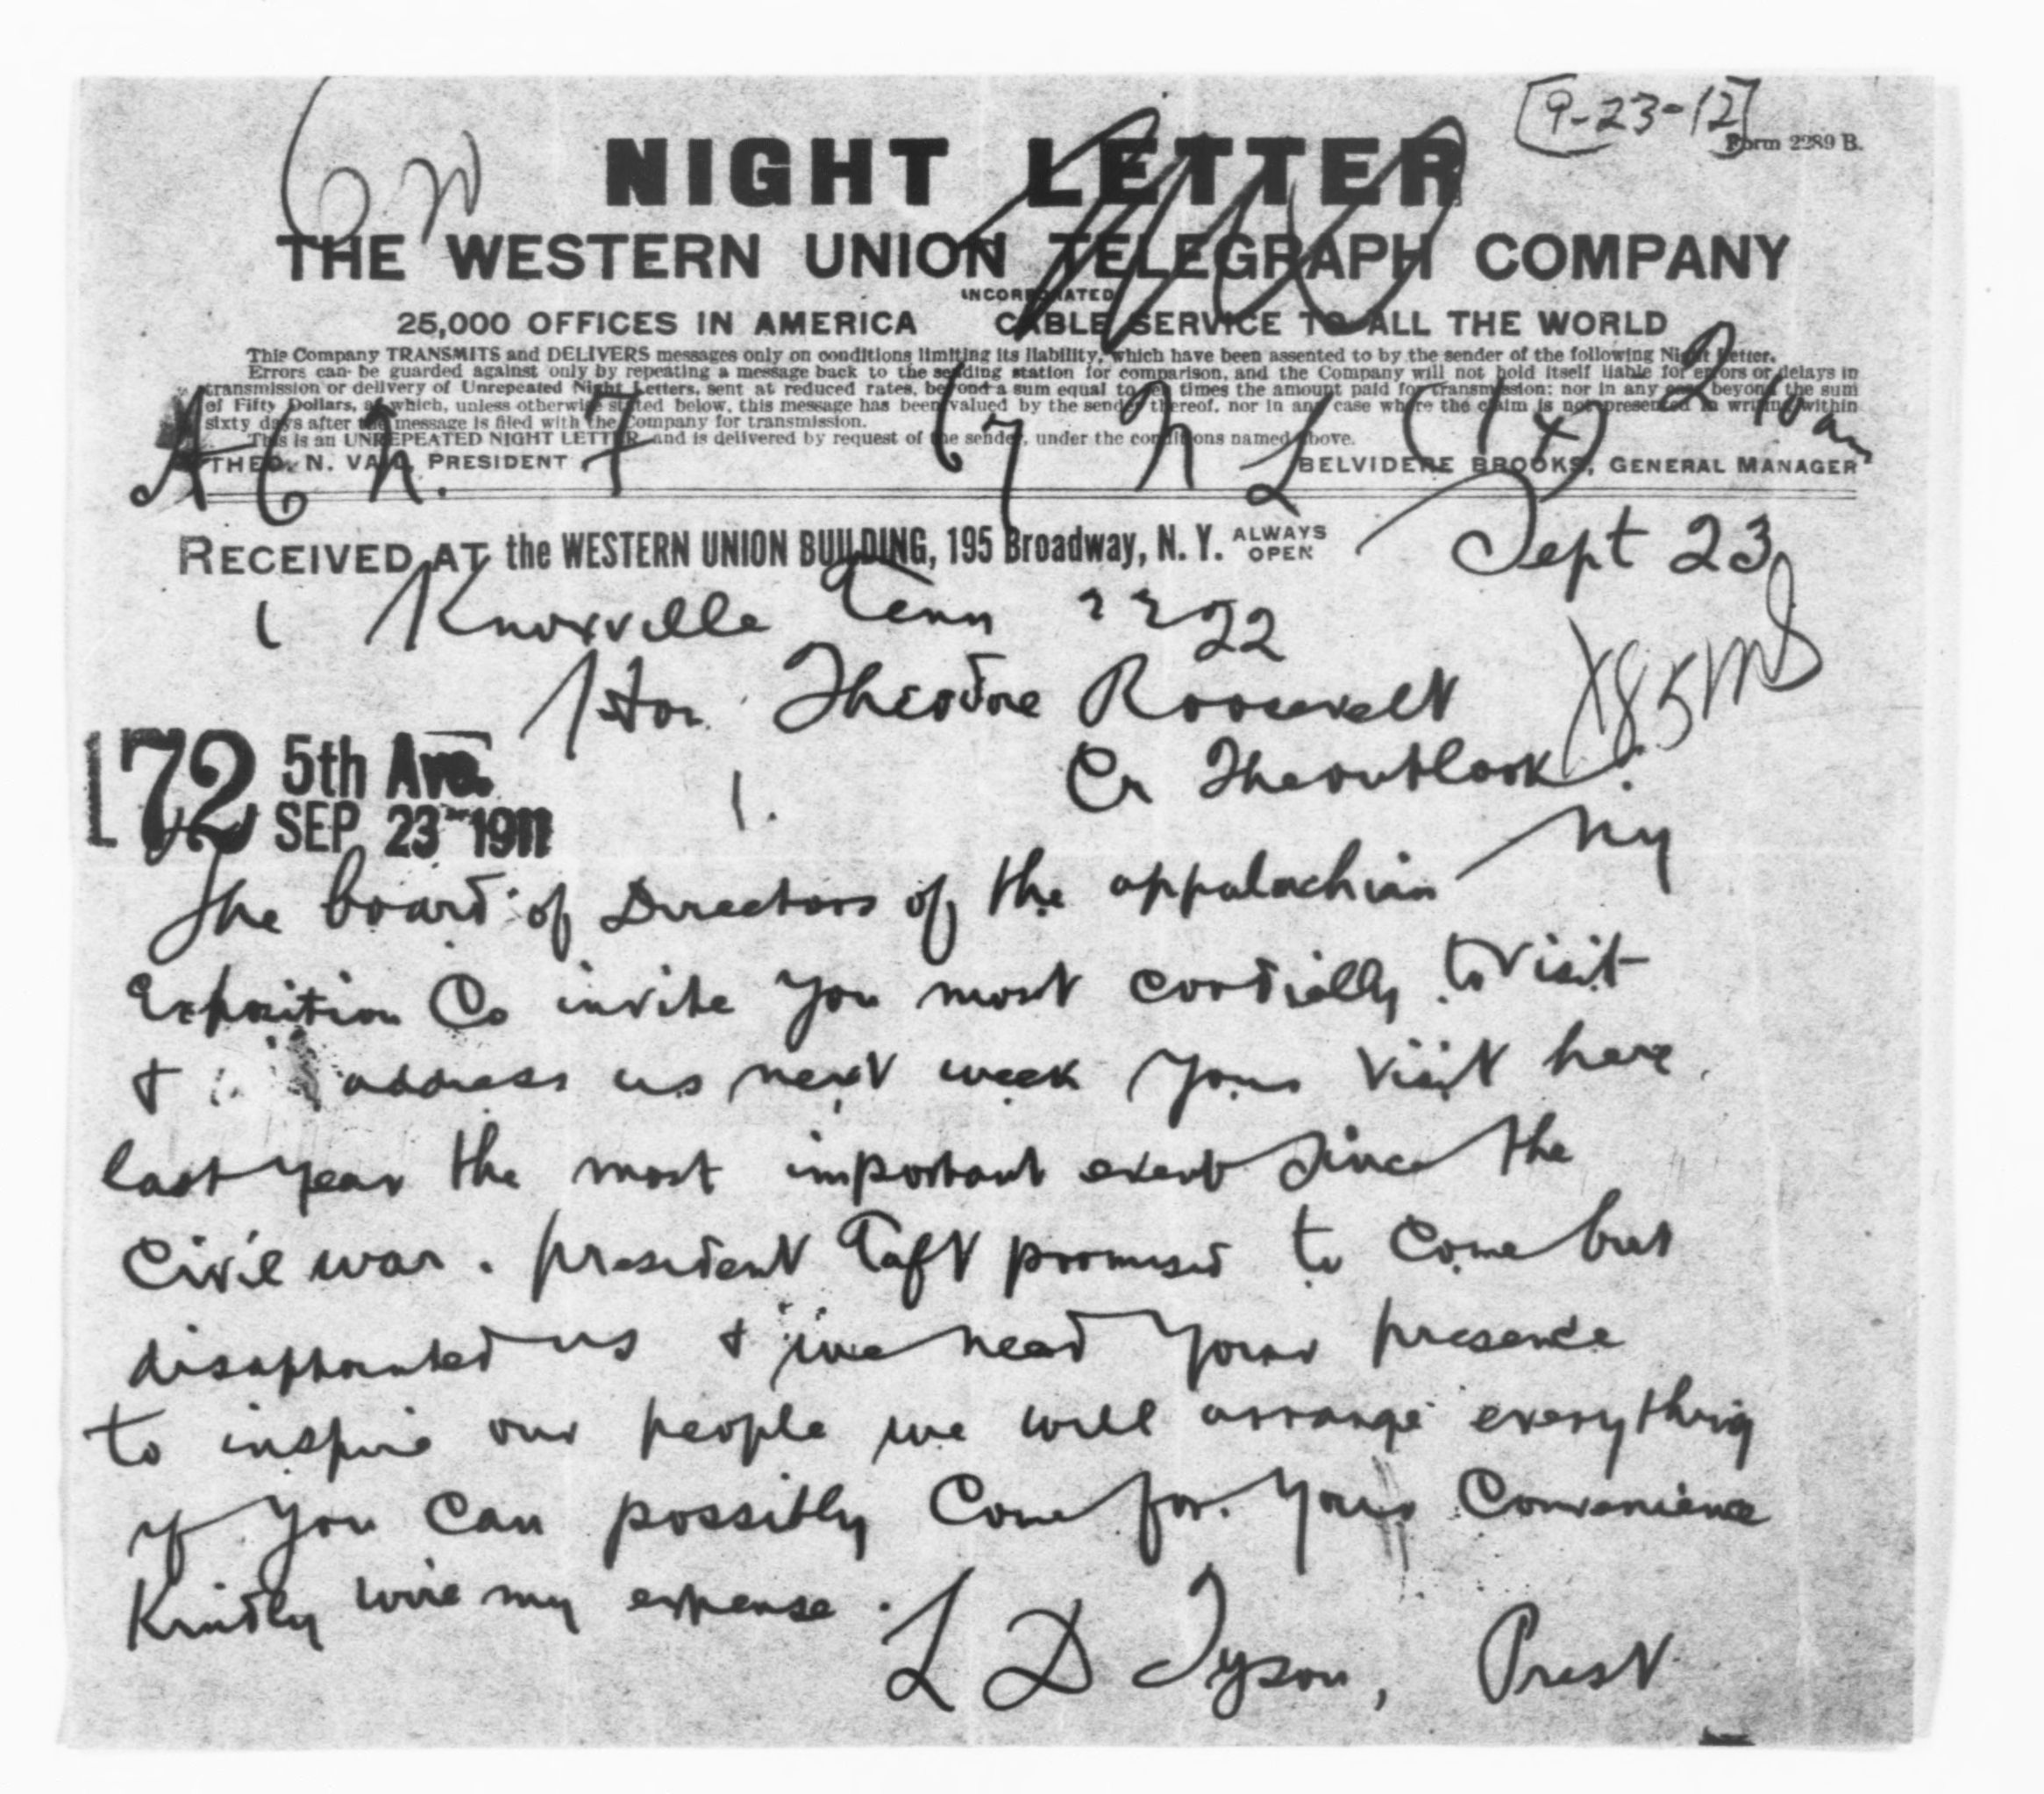 [9-23-12]
Form 2289 B.
NIGHT LETTER
THE WESTERN UNION TELEGRAPH COMPANY
INCORPORATED
25,000 OFFICES IN AMERICA CABLE SERVICE TO ALL THE WORLD
This Company TRANSMITS and DELIVERS messages only on conditions limiting its liability, which have been assented to by the sender of the following Night Letter.
Errors can be guarded against only by repeating a message back to the sending station for comparison, and the Company will not hold itself liable for errors or delays in
transmission or delivery of Unrepeated Night Letters, sent at reduced rates, beyond a sum equal to ten times the amount paid for transmission; nor in any case beyond the sum
of Fifty Dollars, at which, unless otherwise stated below, this message has been valued by the sender thereof, nor in any case where the claim is not presented in writing within
sixty days after the message is filed with the Company for transmission.
This is an UNREPEATED NIGHT LETTER and is delivered by request of the sender, under the conditions named above.
THEO. N. VAIL, PRESIDENT BELVIDERE BROOKS, GENERAL MANAGER
RECEIVED AT the WESTERN UNION BUILDING, 195 Broadway, N. Y. ALWAYS OPEN
Sept 23
Knoxville Tenn 22
Hon. Theodore Roosevelt
Cr Theoutlook
172 5th Ave.
SEP 23 1911
NY
The board of Directors of the appalachian
Exposition Co invite you most cordially to visit
& address us next week your visit here
last year the most important event since the
Civil war. president Taft promised to come but
disappointed us & we need your presence
to inspire our people we will arrange everything
if you can possibly come for your convenience
Kindly wire my expense.
L D Tyson, Prest